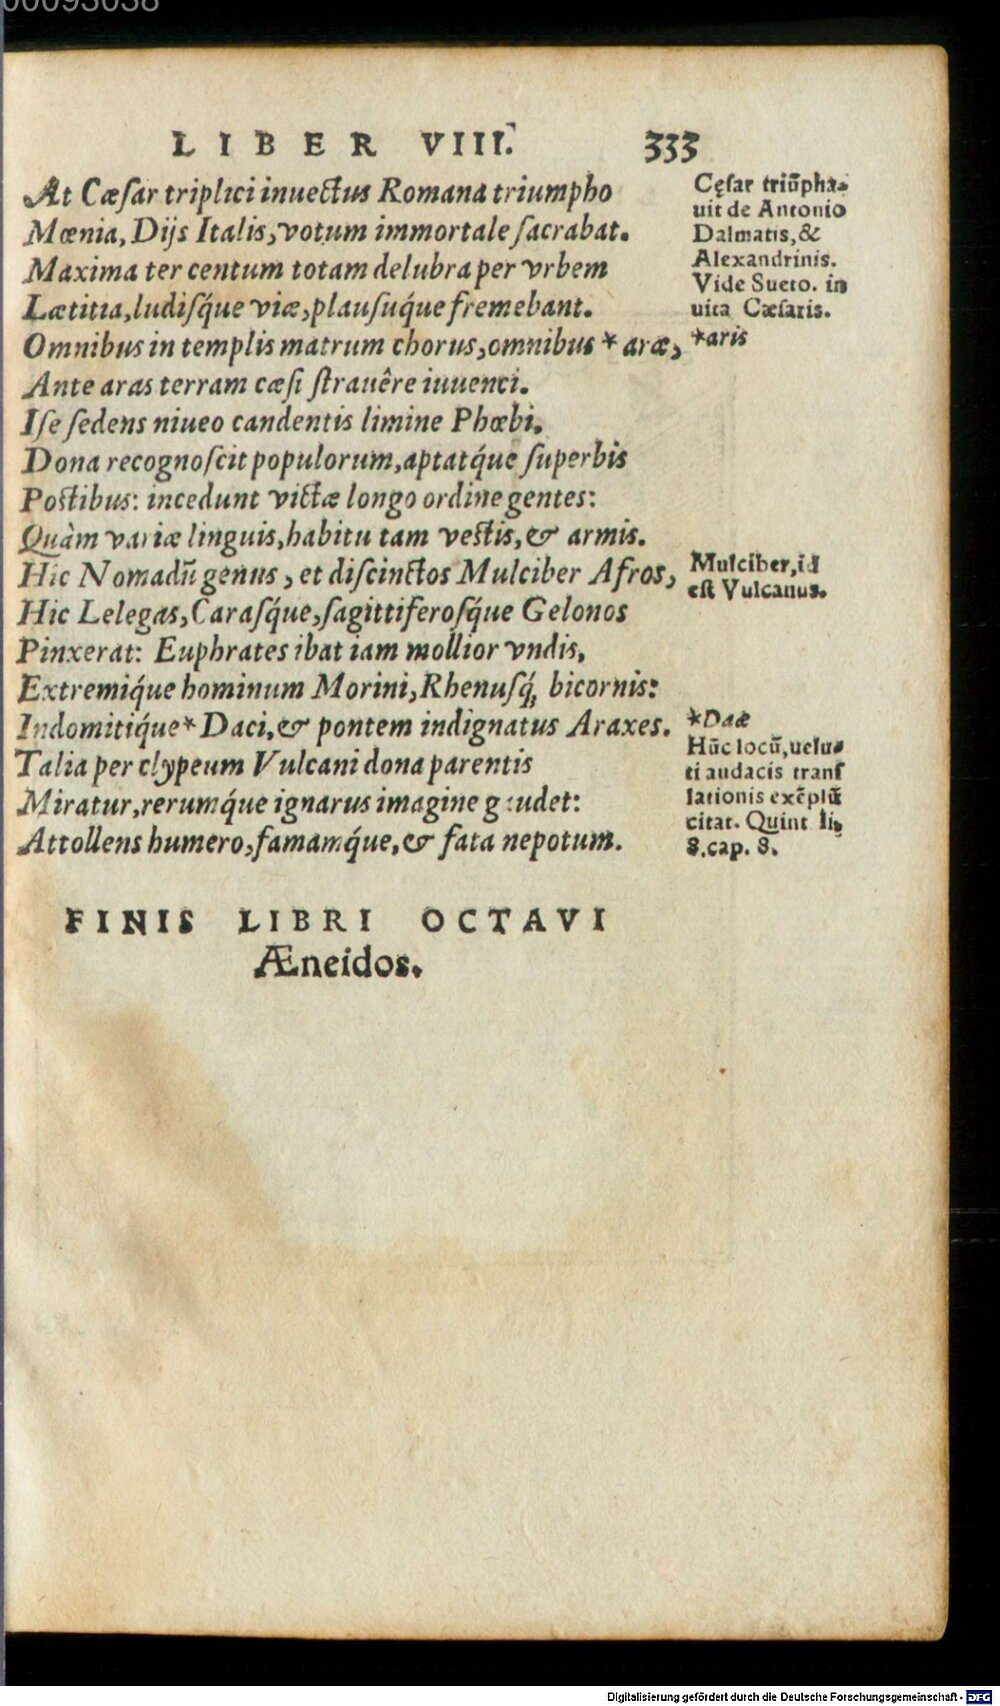 00093038
LIBER VIII. 333
At Cæſar triplici inuectus Romana triumpho
Mœnia, Dijs Italis, votum immortale ſacrabat.
Maxima ter centum totam delubra per vrbem
Lætitia, ludiſq́ue viæ, plauſuq́ue fremebant.
Omnibus in templis matrum chorus, omnibus * aræ,
Ante aras terram cæſi ſtrauêre iuuenci.
Iſe ſedens niueo candentis limine Phœbi,
Dona recognoſcit populorum, aptatq́ue ſuperbis
Poſtibus: incedunt victæ longo ordine gentes:
Quàm variæ linguis, habitu tam veſtis, & armis.
Hic Nomadū genus, et diſcinctos Mulciber Afros,
Hic Lelegas, Caraſq́ue, ſagittiferoſq́ue Gelonos
Pinxerat: Euphrates ibat iam mollior vndis,
Extremiq́ue hominum Morini, Rhenuſq́; bicornis:
Indomitiq́ue * Daci, & pontem indignatus Araxes.
Talia per clypeum Vulcani dona parentis
Miratur, rerumq́ue ignarus imagine gaudet:
Attollens humero, famamq́ue, & fata nepotum.
Cęſar triūpha-
uit de Antonio
Dalmatis, &
Alexandrinis.
Vide Sueto. in
uita Cæſaris.
*aris
Mulciber, id
eſt Vulcanus.
*Daæ
Hūc locū, uelu-
ti audacis tranſ
lationis exēplū
citat. Quint li.
8. cap. 8.
FINIS LIBRI OCTAVI
Æneidos.
Digitalisierung gefördert durch die Deutsche Forschungsgemeinschaft - DFG